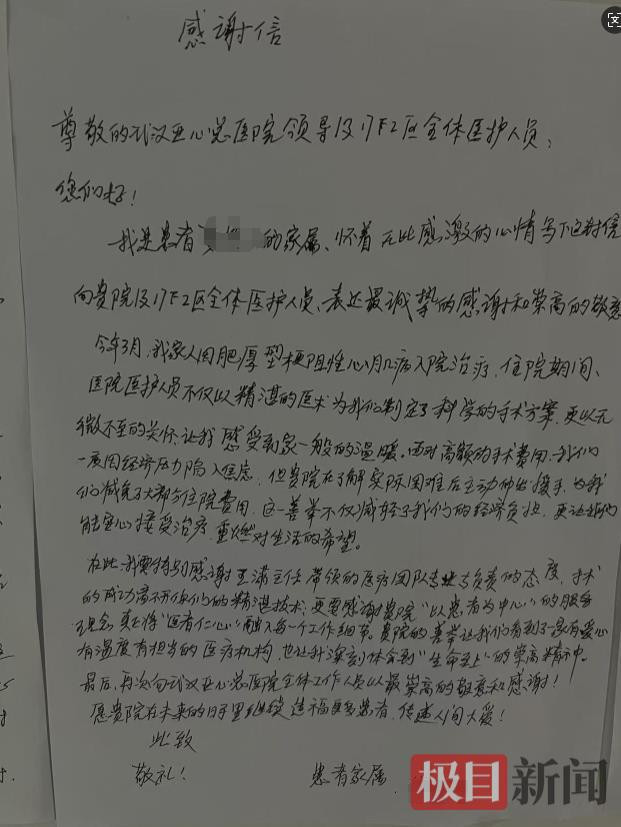 感谢信
尊敬的武汉亚心总医院领导及17F2区全体医护人员:
您们好!
我是患者 的家属、怀着无比感激的心情写下这封信
向贵院及17F2区全体医护人员、表达最诚挚的感谢和崇高的敬意
今年3月,我家人因肥厚型梗阻性心肌病入院治疗,住院期间、
医院医护人员不仅以精湛的医术为我们制定了科学的手术方案,更以无
微不至的关怀让我感受到家一般的温暖。面对高额的手术费用,我们
一度因经济压力陷入焦虑,但贵院在了解实际困难后主动伸出援手,为我
们减免了大部分住院费用,这一善举不仅减轻了我们的经济负担,更让我们
能安心接受治疗,重燃对生活的希望。
在此,我要特别感谢 主任带领的医疗团队专业与负责的态度,手术
的成功离不开你们的精湛技术;更要感谢贵院"以患者为中心"的服务
理念,真正将"医者仁心"融入每一个工作细节。贵院的善举让我们看到了一家有爱心
有温度有担当的医疗机构,也让我深刻体会到"生命至上"的崇高精神。
最后,再次向武汉亚心总医院全体工作人员以最崇高的敬意和感谢!
愿贵院在未来的日子里继续造福更多患者,传递人间大爱!
此致
敬礼!
患者家属
极目新闻